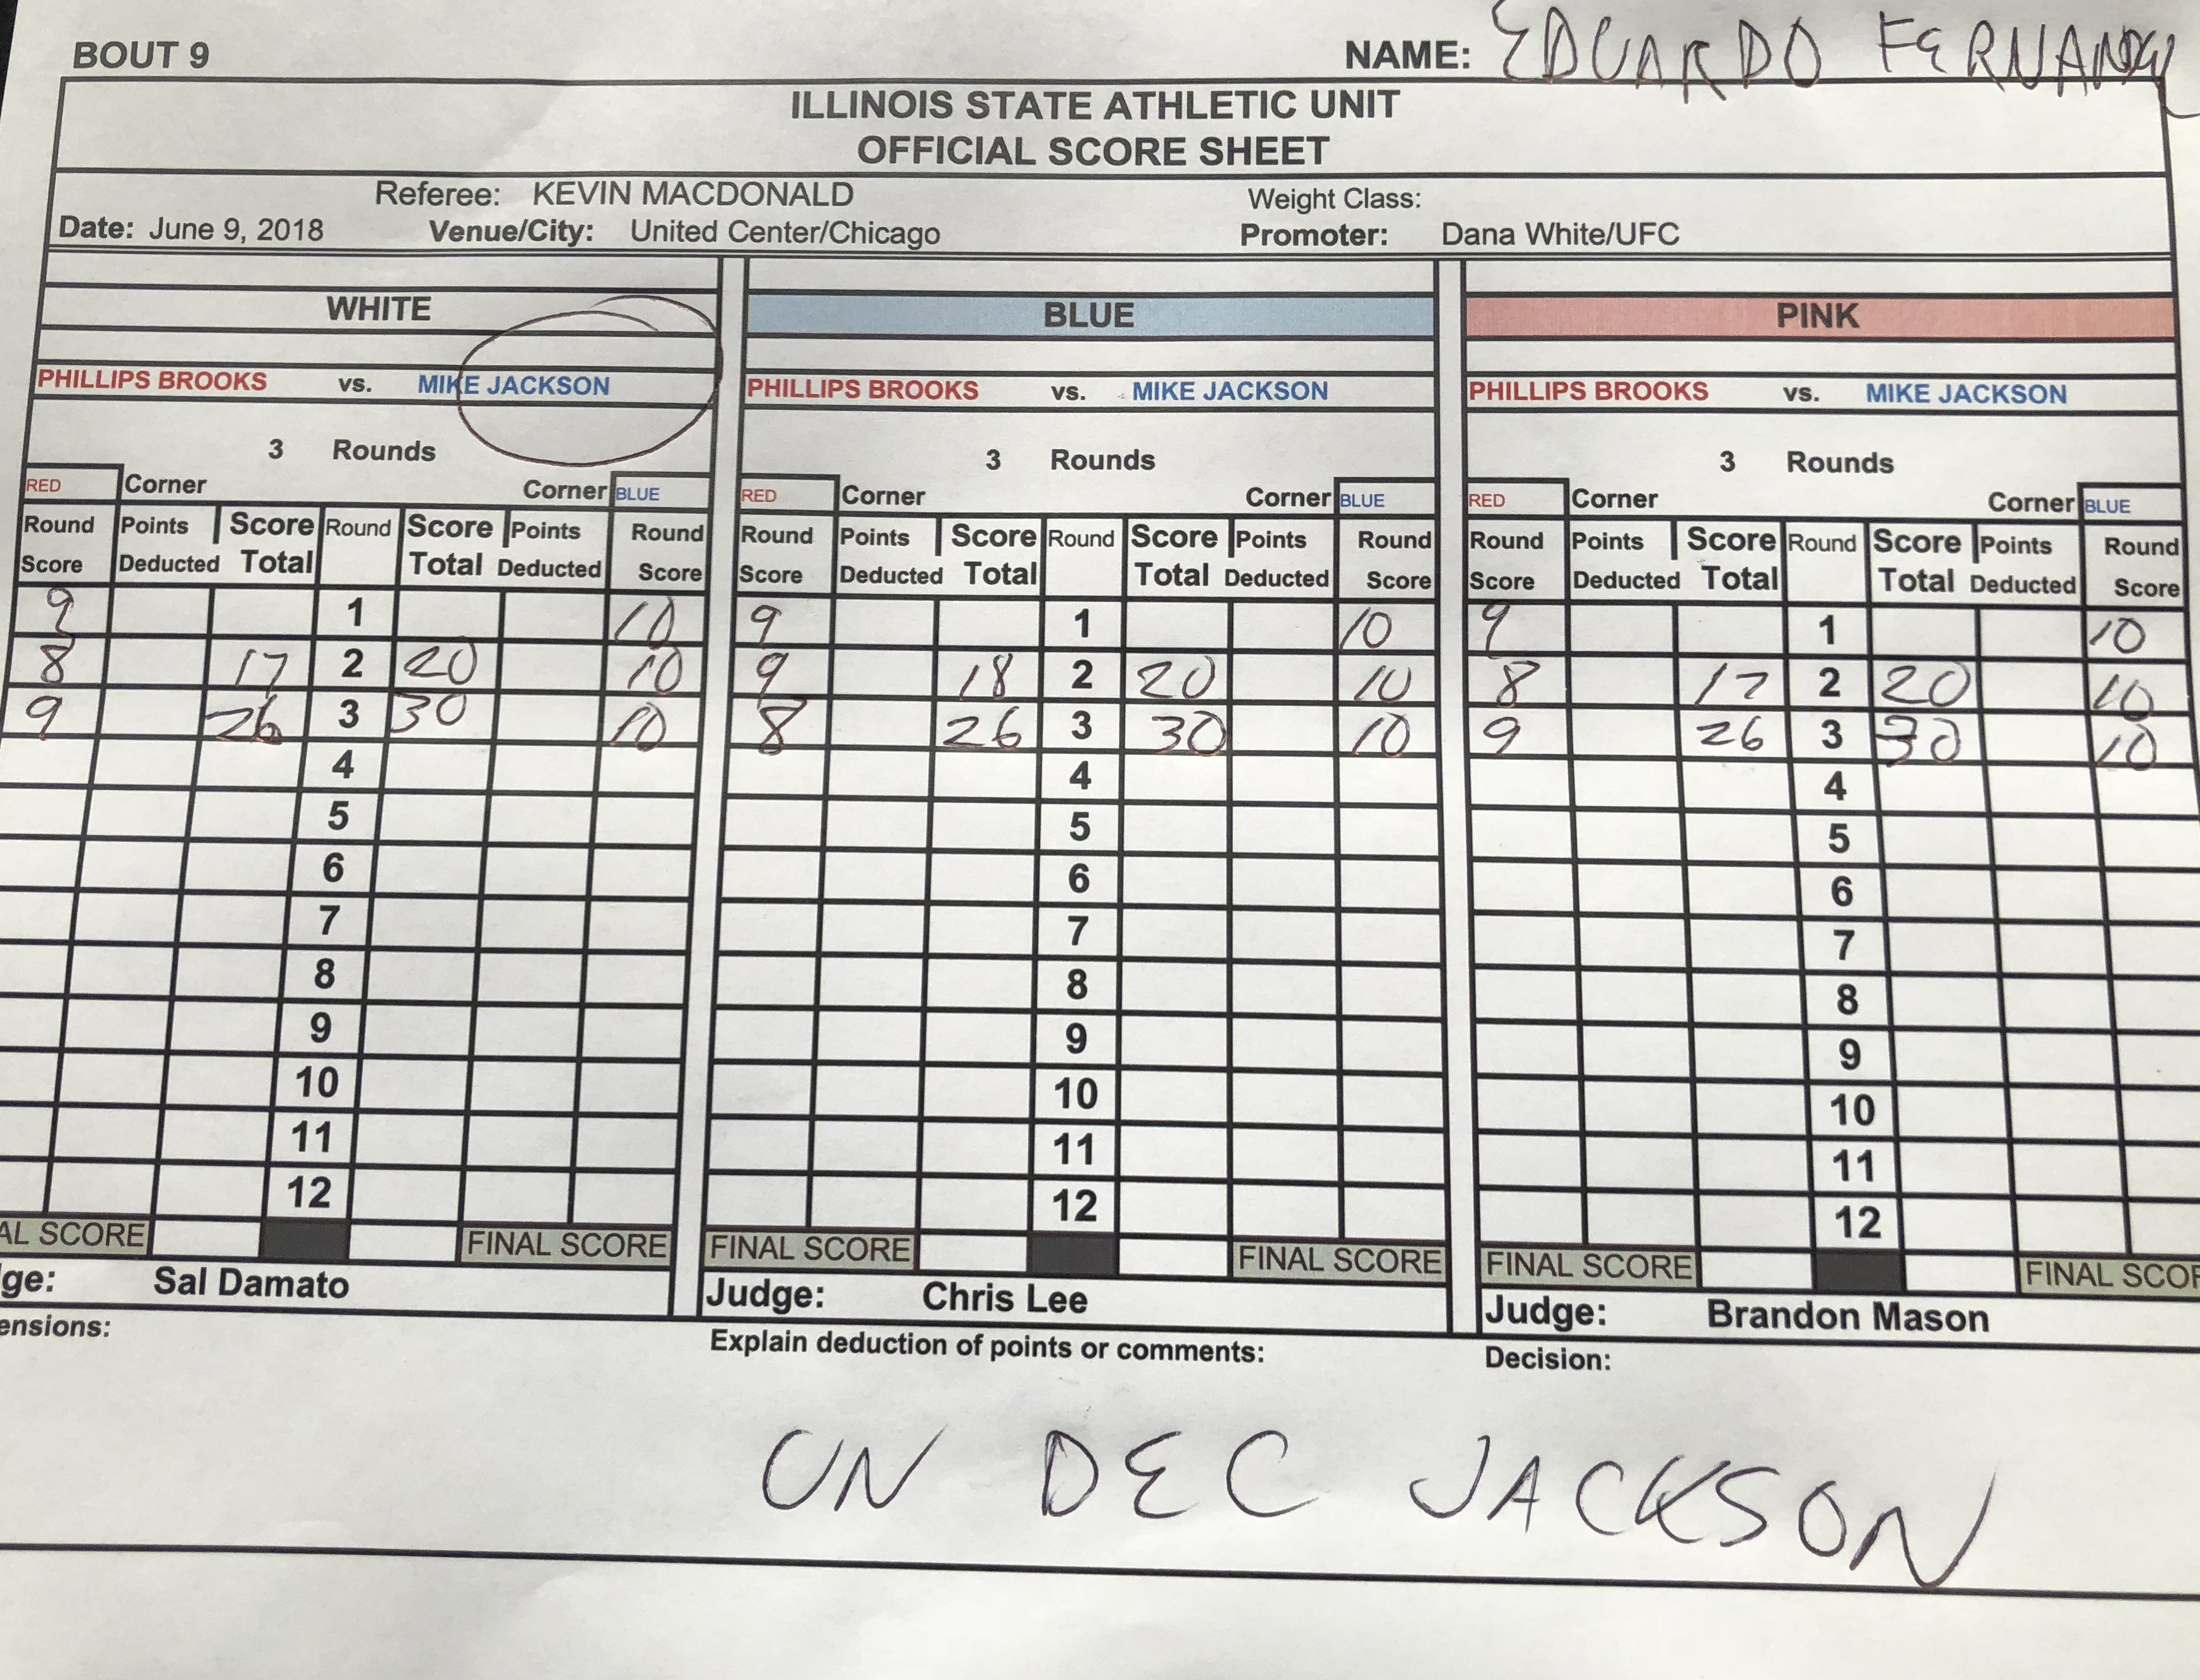 BOUT 9 NAME: EDUARDO FERNANDEZ
ILLINOIS STATE ATHLETIC UNIT
OFFICIAL SCORE SHEET
Referee: KEVIN MACDONALD Weight Class:
Date: June 9, 2018 Venue/City: United Center/Chicago Promoter: Dana White/UFC
WHITE BLUE PINK
PHILLIPS BROOKS vs. MIKE JACKSON PHILLIPS BROOKS vs. MIKE JACKSON PHILLIPS BROOKS vs. MIKE JACKSON
3 Rounds 3 Rounds 3 Rounds
RED Corner Corner BLUE RED Corner Corner BLUE RED Corner Corner BLUE
Round Points Score Round Score Points Round Round Points Score Round Score Points Round Round Points Score Round Score Points Round
Score Deducted Total Total Deducted Score Score Deducted Total Total Deducted Score Score Deducted Total Total Deducted Score
9 1 10 9 1 10 9 1 10
8 17 2 20 10 9 18 2 20 10 8 17 2 20 10
9 26 3 30 10 8 26 3 30 10 9 26 3 30 10
4 4 4
5 5 5
6 6 6
7 7 7
8 8 8
9 9 9
10 10 10
11 11 11
12 12 12
AL SCORE FINAL SCORE FINAL SCORE FINAL SCORE FINAL SCORE FINAL SCOR
ge: Sal Damato Judge: Chris Lee Judge: Brandon Mason
ensions: Explain deduction of points or comments: Decision:
UN DEC JACKSON